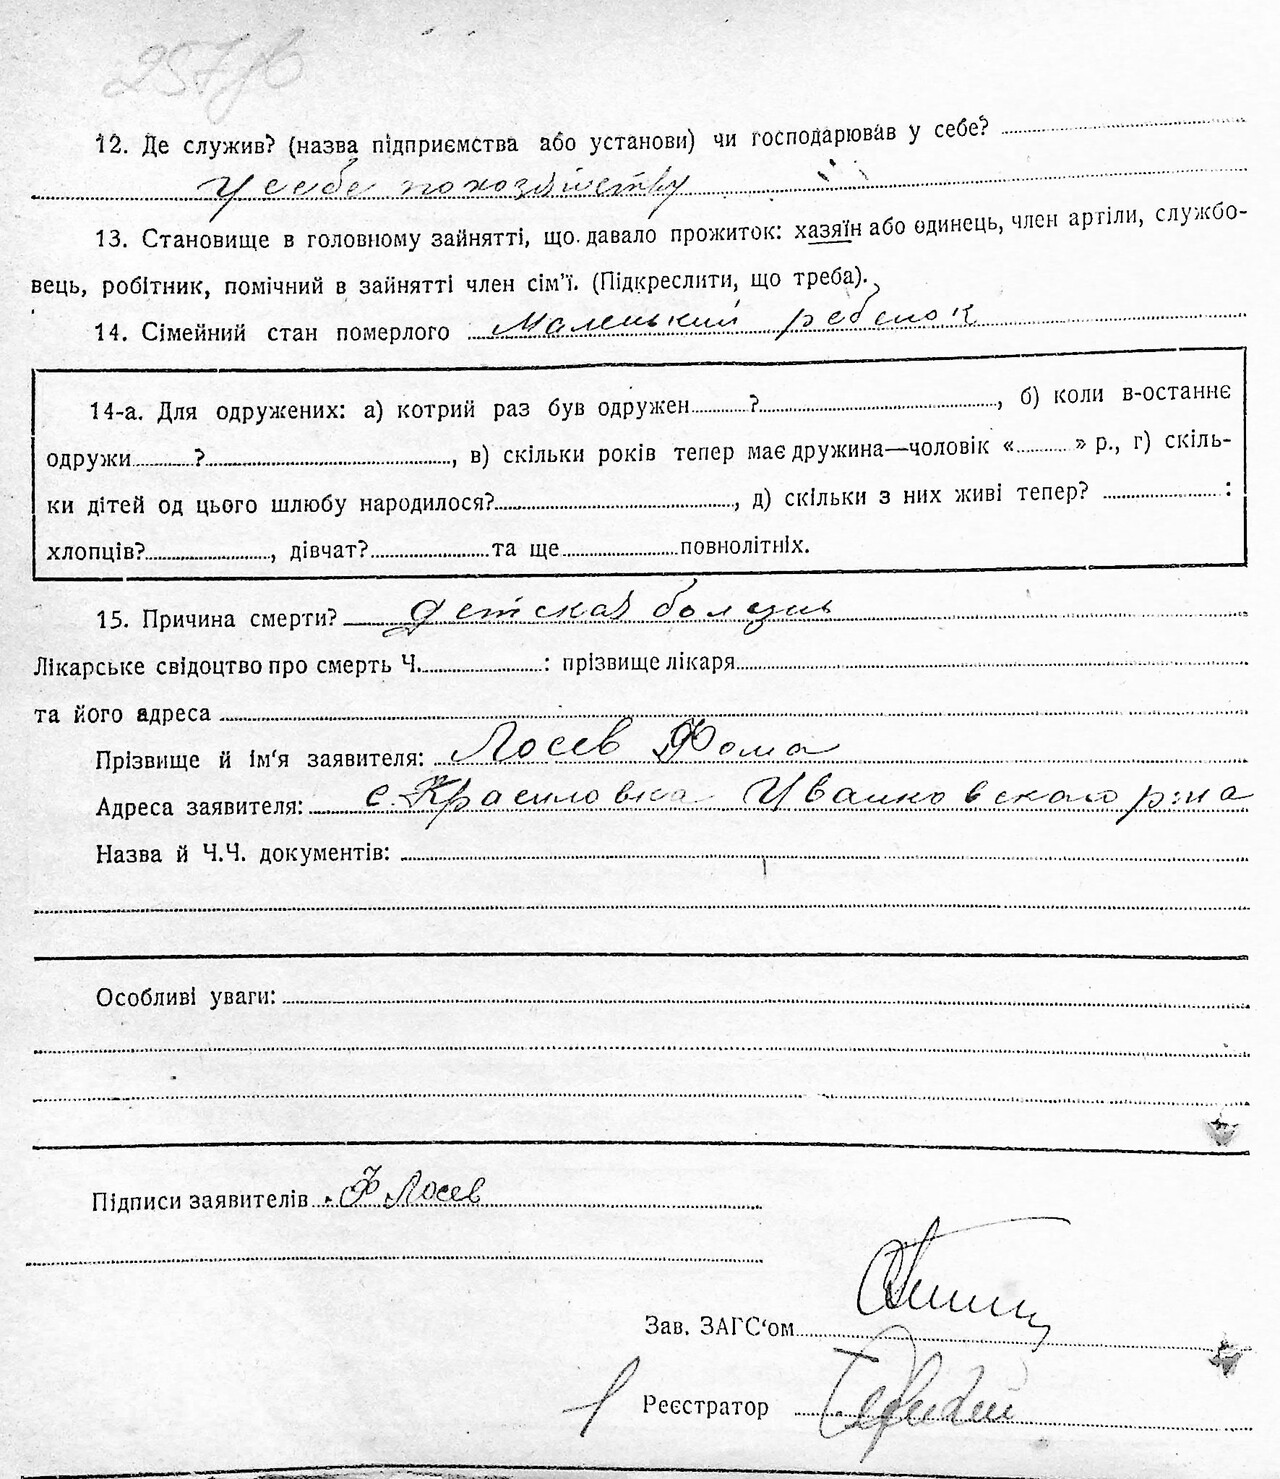 12. Де служив? (назва підприємства або установи) чи господарював у себе?
У себе по хозяйству
13. Становище в головному зайнятті, що давало прожиток: хазяїн або одинець, член артіли, службо-
вець, робітник, помічний в зайнятті член сім'ї. (Підкреслити, що треба).
14. Сімейний стан померлого Маленький ребенок
14-а. Для одружених: а) котрий раз був одружен ? , б) коли в-останнє
одружи ? , в) скільки років тепер має дружина—чоловік « » р., г) скіль-
ки дітей од цього шлюбу народилося? , д) скільки з них живі тепер? :
хлопців? , дівчат? та ще повнолітніх.
15. Причина смерти? Детская болезнь
Лікарське свідоцтво про смерть Ч. : прізвище лікаря
та його адреса
Прізвище й ім'я заявителя: Лосев Фома
Адреса заявителя: с. Красиловка Иванковского р-на
Назва й Ч.Ч. документів:
Особливі уваги:
Підписи заявителів Ф Лосев
Зав. ЗАГС'ом
Реєстратор